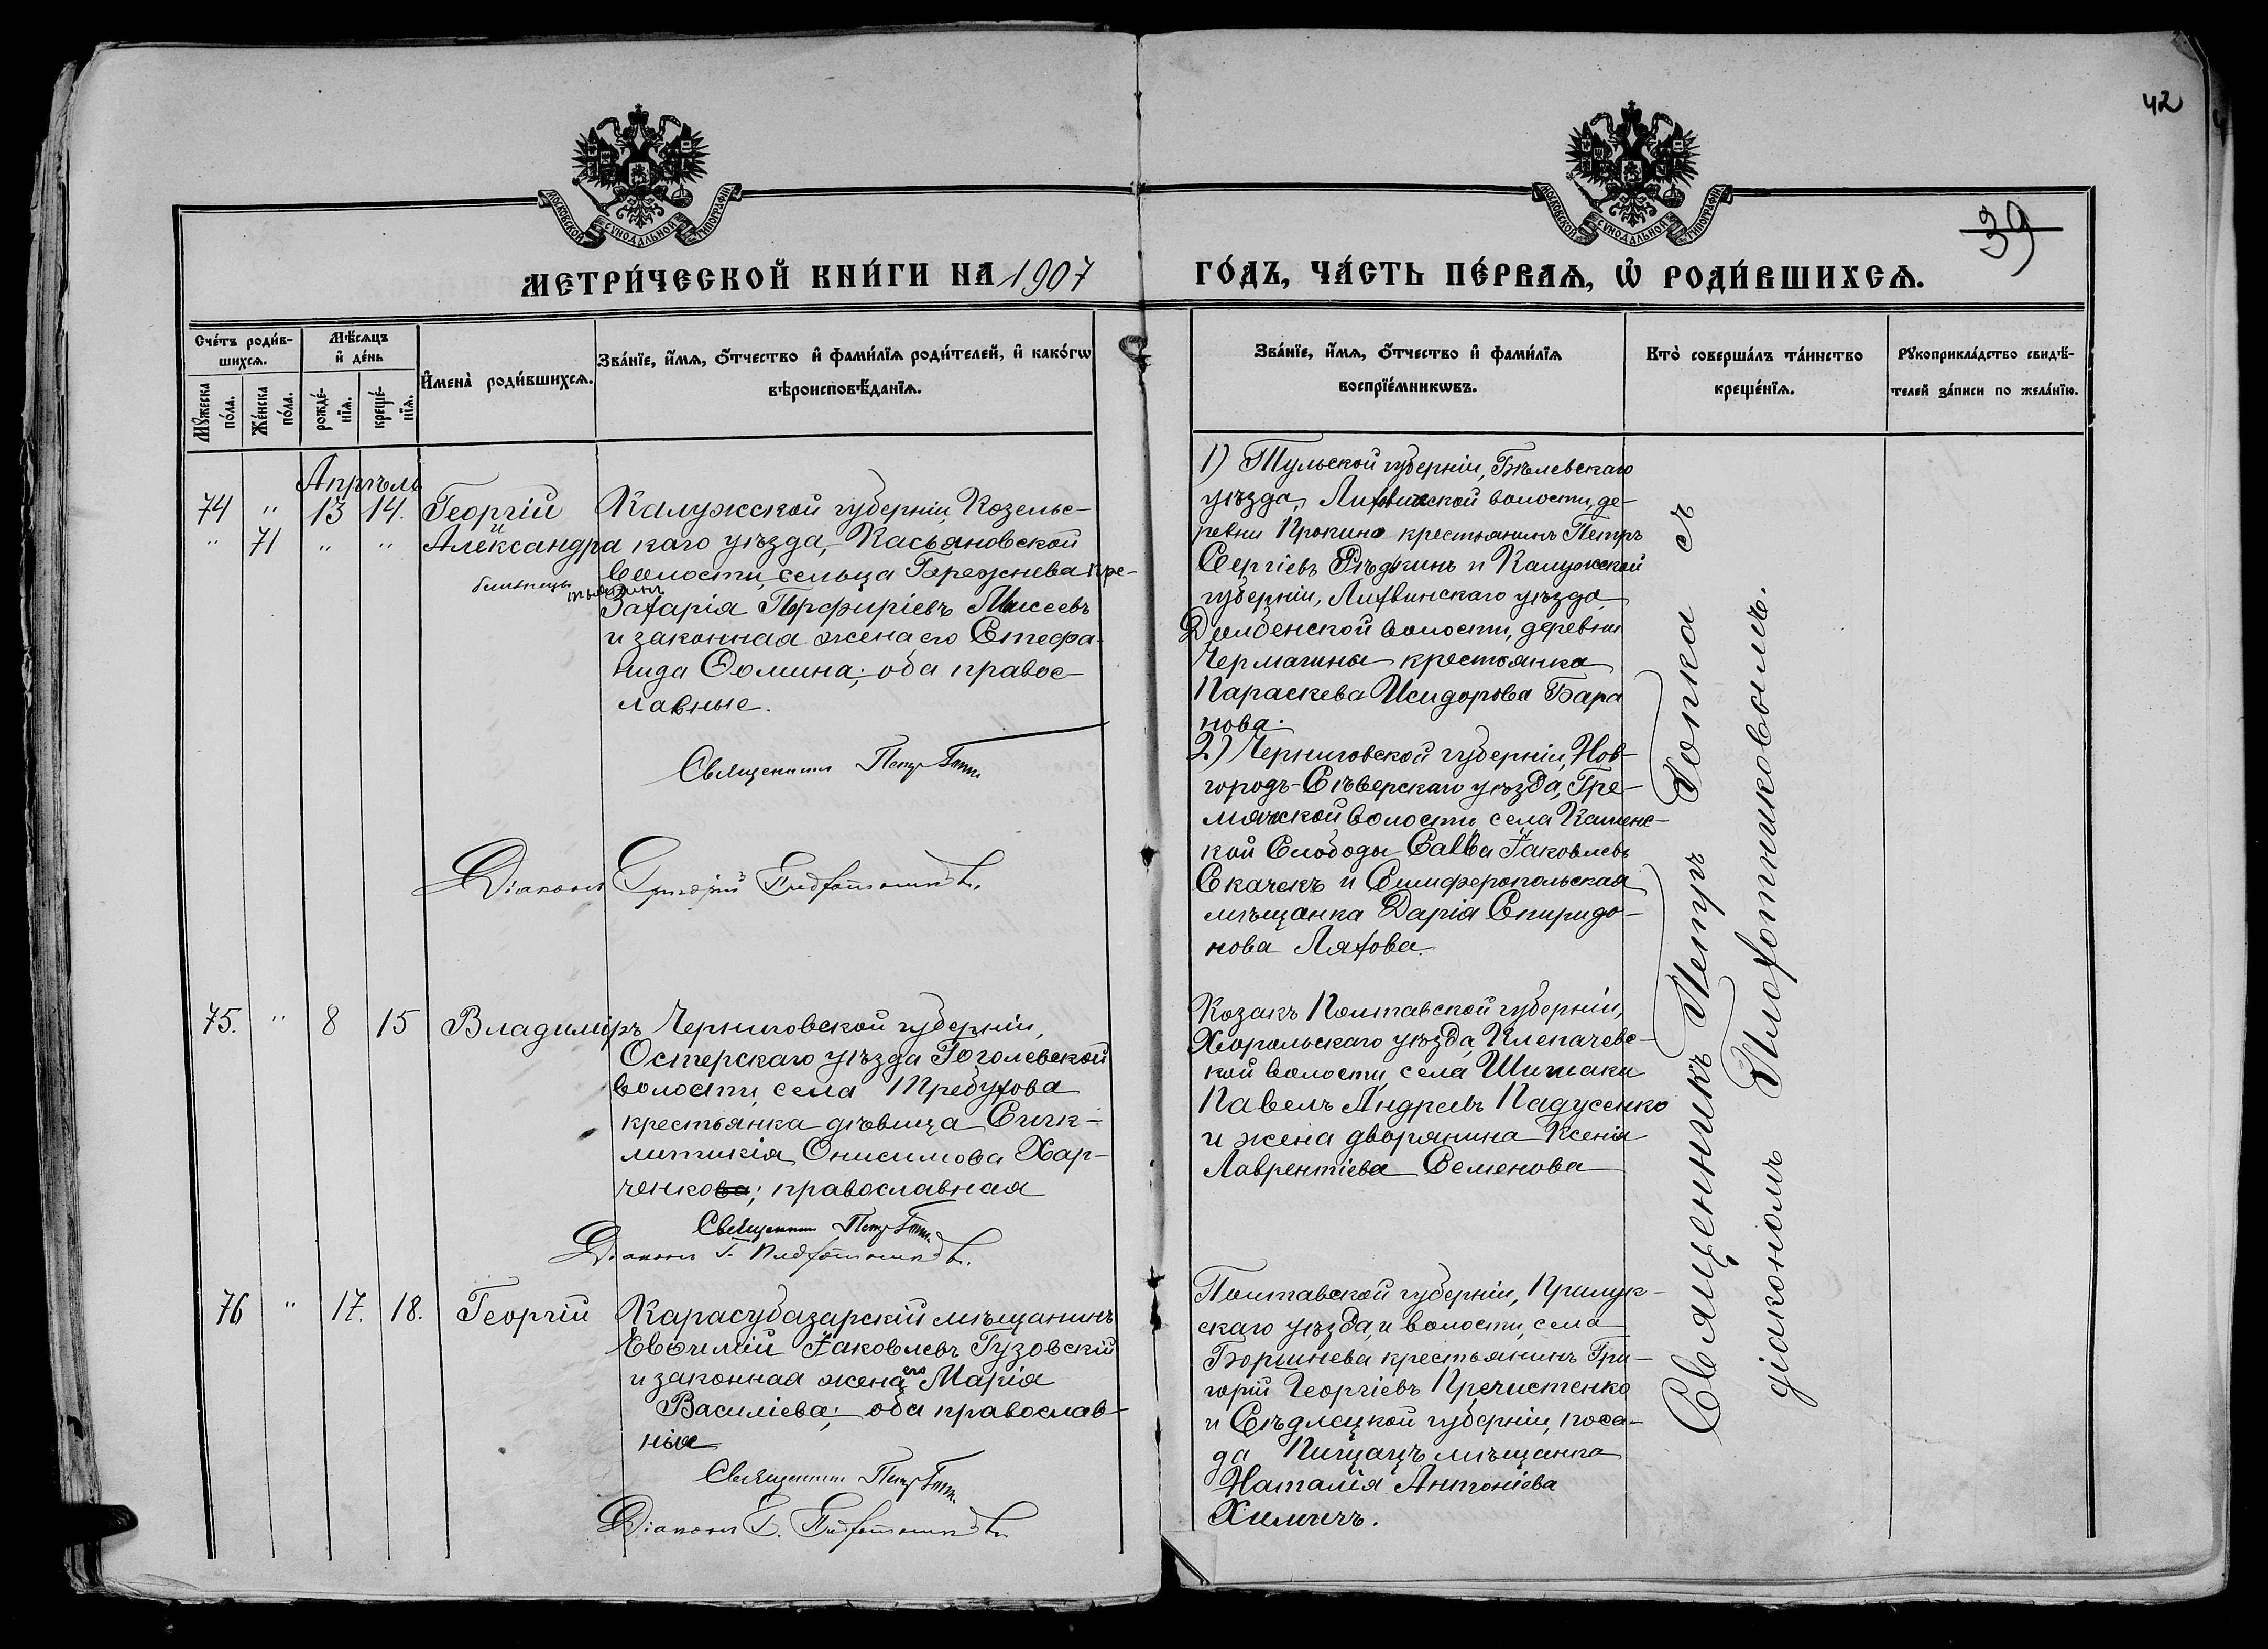 42
39
МОСКОВСКОЙ СѴНОДАЛЬНОЙ ТИПОГРАФІИ
МОСКОВСКОЙ СѴНОДАЛЬНОЙ ТИПОГРАФІИ
МЕТРИ́ЧЕСКОЙ КНИ́ГИ НА 1907
ГО́ДЪ, ЧА́СТЬ ПЕ́РВАѦ, Ѡ҆ РОДИ́ВШИХСѦ.
Сче́тъ роди́в-
шихсѧ.
Мꙋжеска
по́ла.
Же́нска
по́ла.
Мѣ́сѧцъ
и҆ де́нь
рожде́-
нїѧ.
креще́-
нїѧ.
И҆мена̀ роди́вшихсѧ.
Зва́нїе, и҆́мѧ, ѻ҆́тчество и҆ фами́лїѧ роди́телей, и҆ како́гѡ
вѣроисповѣ́данїѧ.
Зва́нїе, и҆́мѧ, ѻ҆́тчество и҆ фами́лїѧ
воспрїе́мникѡвъ.
Кто̀ соверша́лъ та́инство
креще́нїѧ.
Рꙋкоприкла́дство свидѣ́-
телей за́писи по жела́нїю.
Апрѣль
74 " 13 14. Георгій
и
" 71 " " Александра
близнецы
Калужской губерніи, Козельс-
каго уѣзда, Касьяновской
волости, сельца Брежнева кре-
стьянинъ
Захарія Порфиріевъ Моисеевъ
и законная жена его Стефа-
нида Ѳомина; оба правос-
лавные.
Священникъ Петръ
Діаконъ Григорій Плохотниковъ.
1) Тульской губерніи, Бѣлевскаго
уѣзда, Лихвинской волости, де-
ревни Прокино крестьянинъ Петръ
Сергіевъ Рѣдкинъ и Калужской
губерніи, Лихвинскаго уѣзда
волости, деревни
Чермагины крестьянка
Параскева Исидорова Бара
нова.
2) Черниговской губерніи, Нов-
городъ-Сѣверскаго уѣзда, Гре-
мячской волости, села Каменс-
кой Слободы Савва Іаковлевъ
Скачекъ и Симферопольская
мѣщанка Дарія Спиридо-
нова Ляхова.
75. " 8 15 Владиміръ
Черниговской губерніи,
Остерскаго уѣзда Гоголевской
волости, села Требухова
крестьянка дѣвица Синк-
литикія Онисимова Хар-
ченкова; православная
Священникъ Петръ
Діаконъ Г. Плохотниковъ.
Козакъ Полтавской губерніи,
Хорольскаго уѣзда, Клепачевс-
кой волости, села Шишаки
Павелъ Андреевъ Падусенко
и жена дворянина Ксенія
Лаврентіева Семенова
76 " 17. 18. Георгій
Карасубазарскій мѣщанинъ
Евѳимій Іаковлевъ Гузовскій
и законная жена его Марія
Василіева; оба православ-
ные
Священникъ Петръ
Діаконъ Г. Плохотниковъ.
Полтавской губерніи, Прилук-
скаго уѣзда, и волости, села
Боршнева крестьянинъ Гри-
горій Георгіевъ Пречистенко
и Сѣдлецкой губерніи, поса-
да Пищацъ мѣщанка
Наталія Антоніева
Химичъ.
Священникъ Петръ Попка съ
діакономъ Плохотниковымъ.